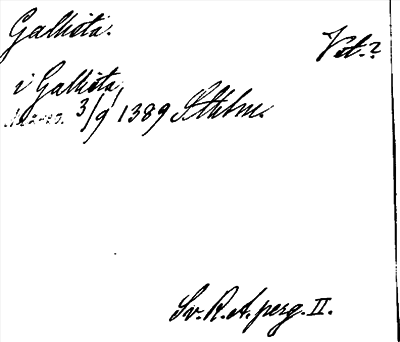 Gallsta.
Vst.?
i Gallsta,
3/9 1389 Sthlm.
Sv. R. A. perg. II.